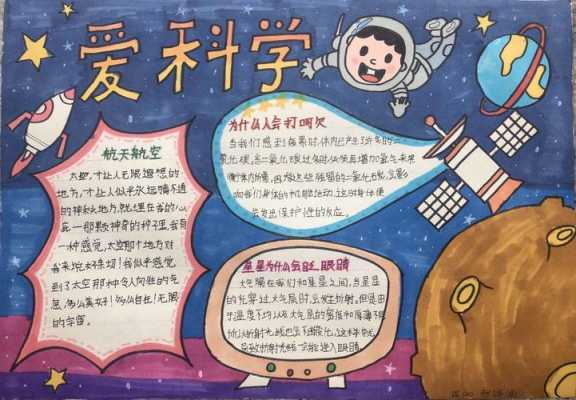 爱科学
航天航空
太空,才让人无限遐想的
地方,才让人似乎永远猜不透
的神秘地方,就埋在我的心
底一那颗神奇的种子里,我有
一种感觉,太空那个地方对
我来说好亲切!我似乎感觉
到了太空那种令人向往的气
息,多么美好!多么自在!无限
的宇宙。
为什么人会打呵欠
当我们感到疲累时,体内已产生了许多的二
氧化碳,
当二氧化碳过多时,必须再增加氧气来
平衡体内所需,因
这些残留的二氧化碳,会影
响我们身体的机能活动,这时身体便
会发出保护性的反应。
星星为什么会眨眼睛
大气隔在我们和星星之间,当星星
的光穿过大气层时,会发生折射,但是由
于温度不均以及大气层的
密度和厚薄不同
所以折射光线也会不断变化,这样就
导致折射光线一会能进入眼睛